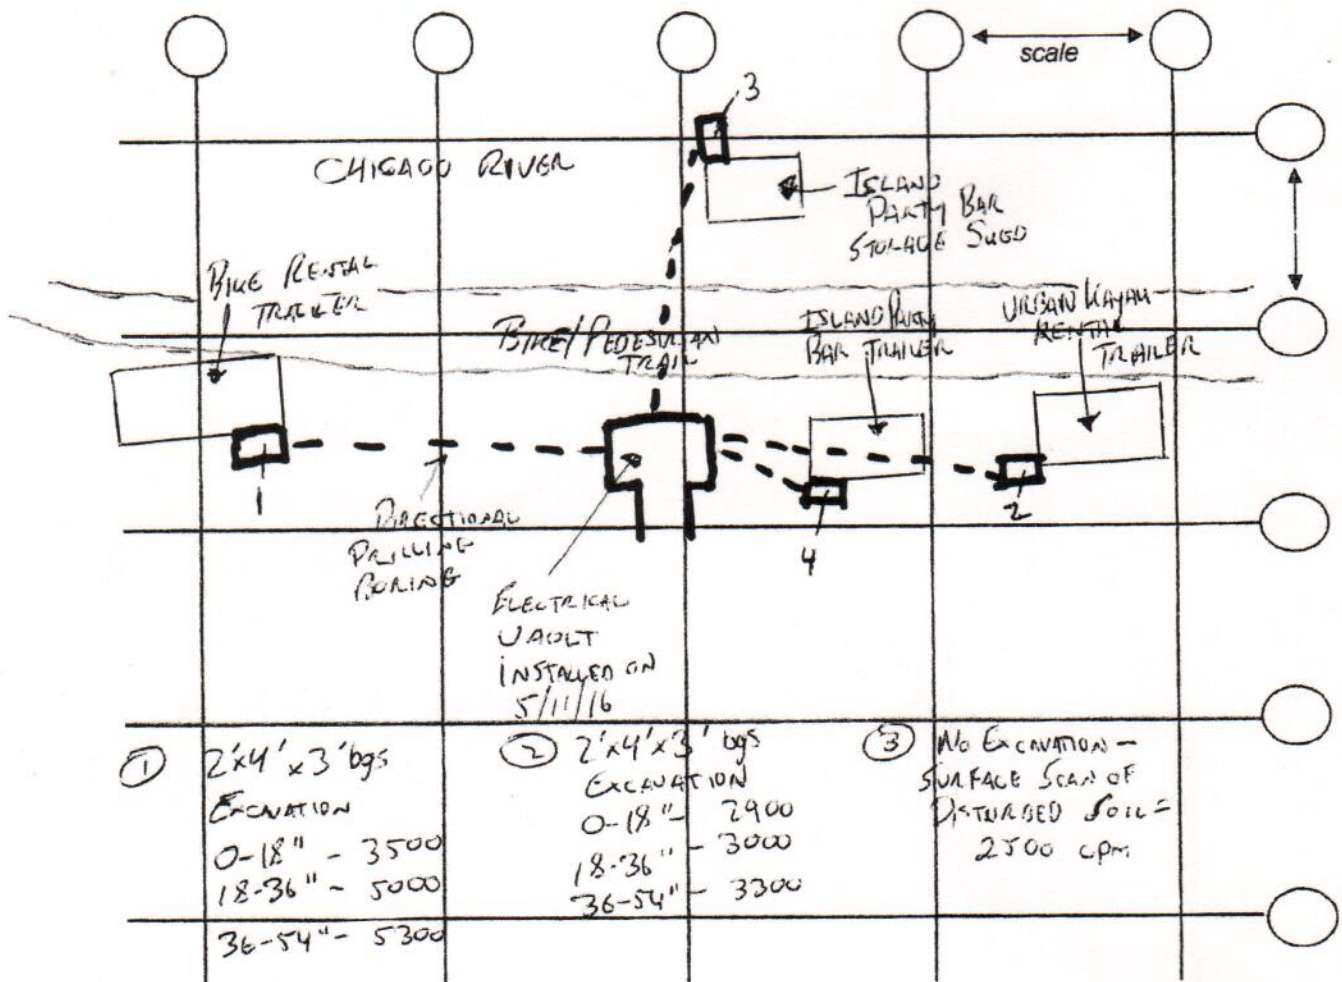 scale
3
CHICAGO RIVER
ISLAND
PARTY BAR
STORAGE SHED
BIKE RENTAL
TRAILER
BIKE/PEDESTRIAN
TRAIL
ISLAND PARTY
BAR TRAILER
URBAN KAYAK
RENTAL
TRAILER
1
2
4
DIRECTIONAL
DRILLING
BORING
ELECTRICAL
VAULT
INSTALLED ON
5/11/16
① 2'x4'x3' bgs
EXCAVATION
0-18" - 3500
18-36" - 5000
36-54" - 5300
② 2'x4'x3' bgs
EXCAVATION
0-18" - 2900
18-36" - 3000
36-54" - 3300
③ NO EXCAVATION -
SURFACE SCAN OF
DISTURBED SOIL =
2500 cpm